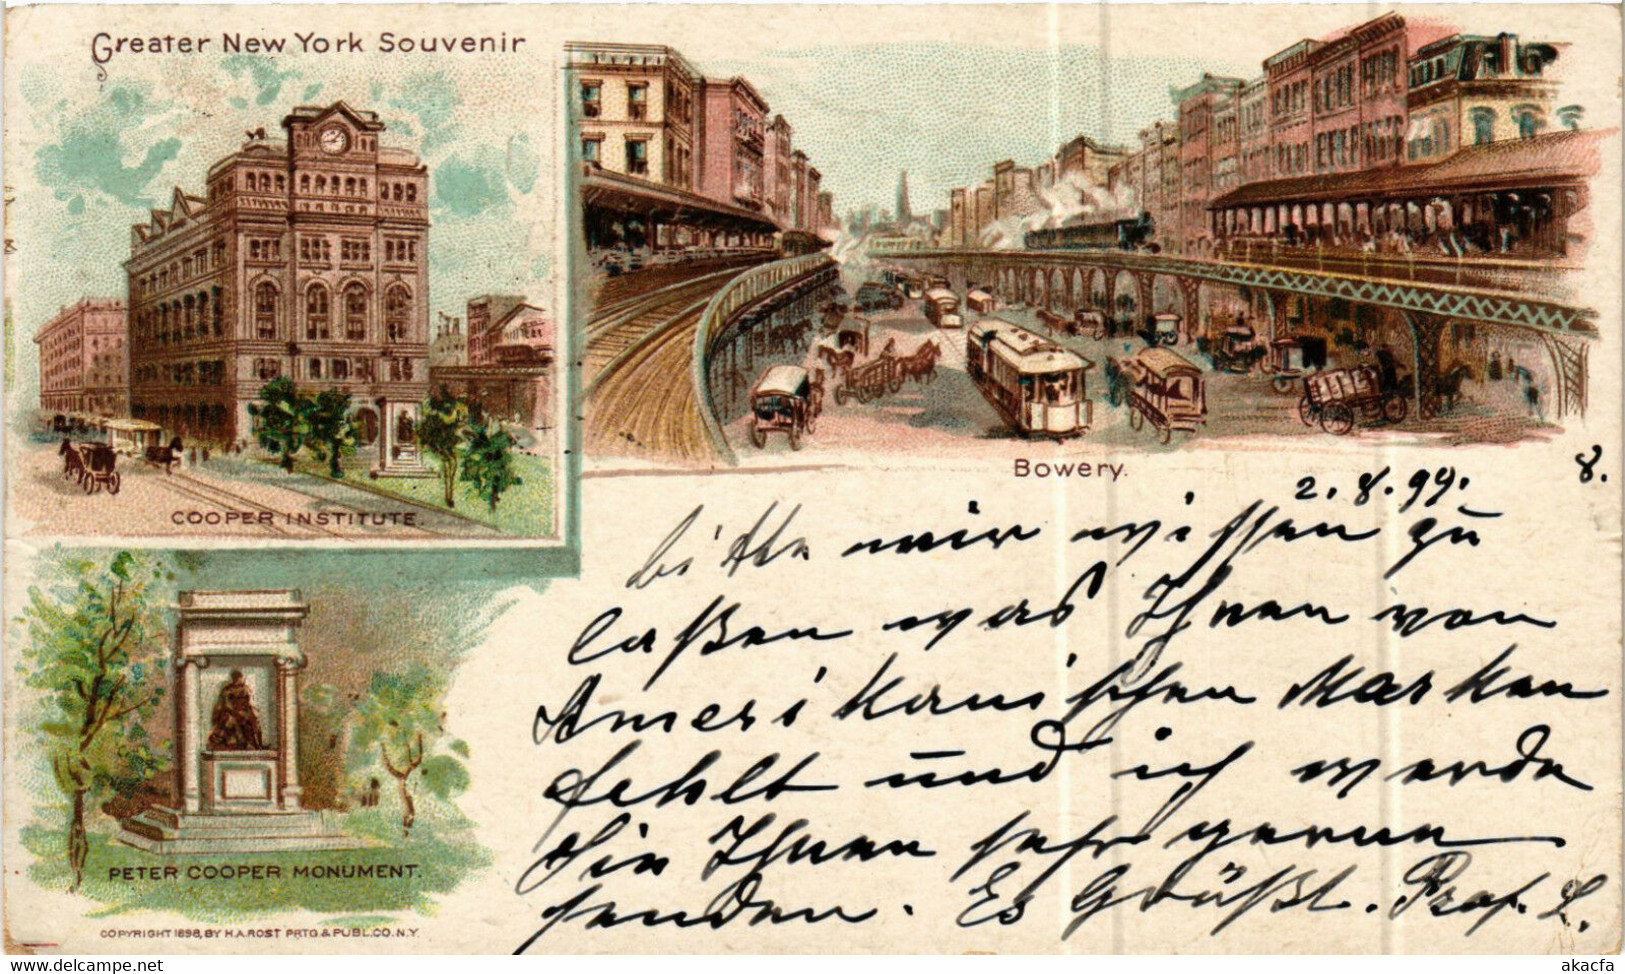 Greater New York Souvenir
COOPER INSTITUTE.
Bowery.
PETER COOPER MONUMENT.
COPYRIGHT 1898, BY H.A.ROST PRTG & PUBL.CO. N.Y.
8.
2.8.99.
bitte mir wissen zu
laßen was Ihnen von
Amerikanischen Marken
fehlt und ich werde
Sie Ihnen sehr gerne
senden. Es Grüßt. Prof. L.
akacfa
www.delcampe.net